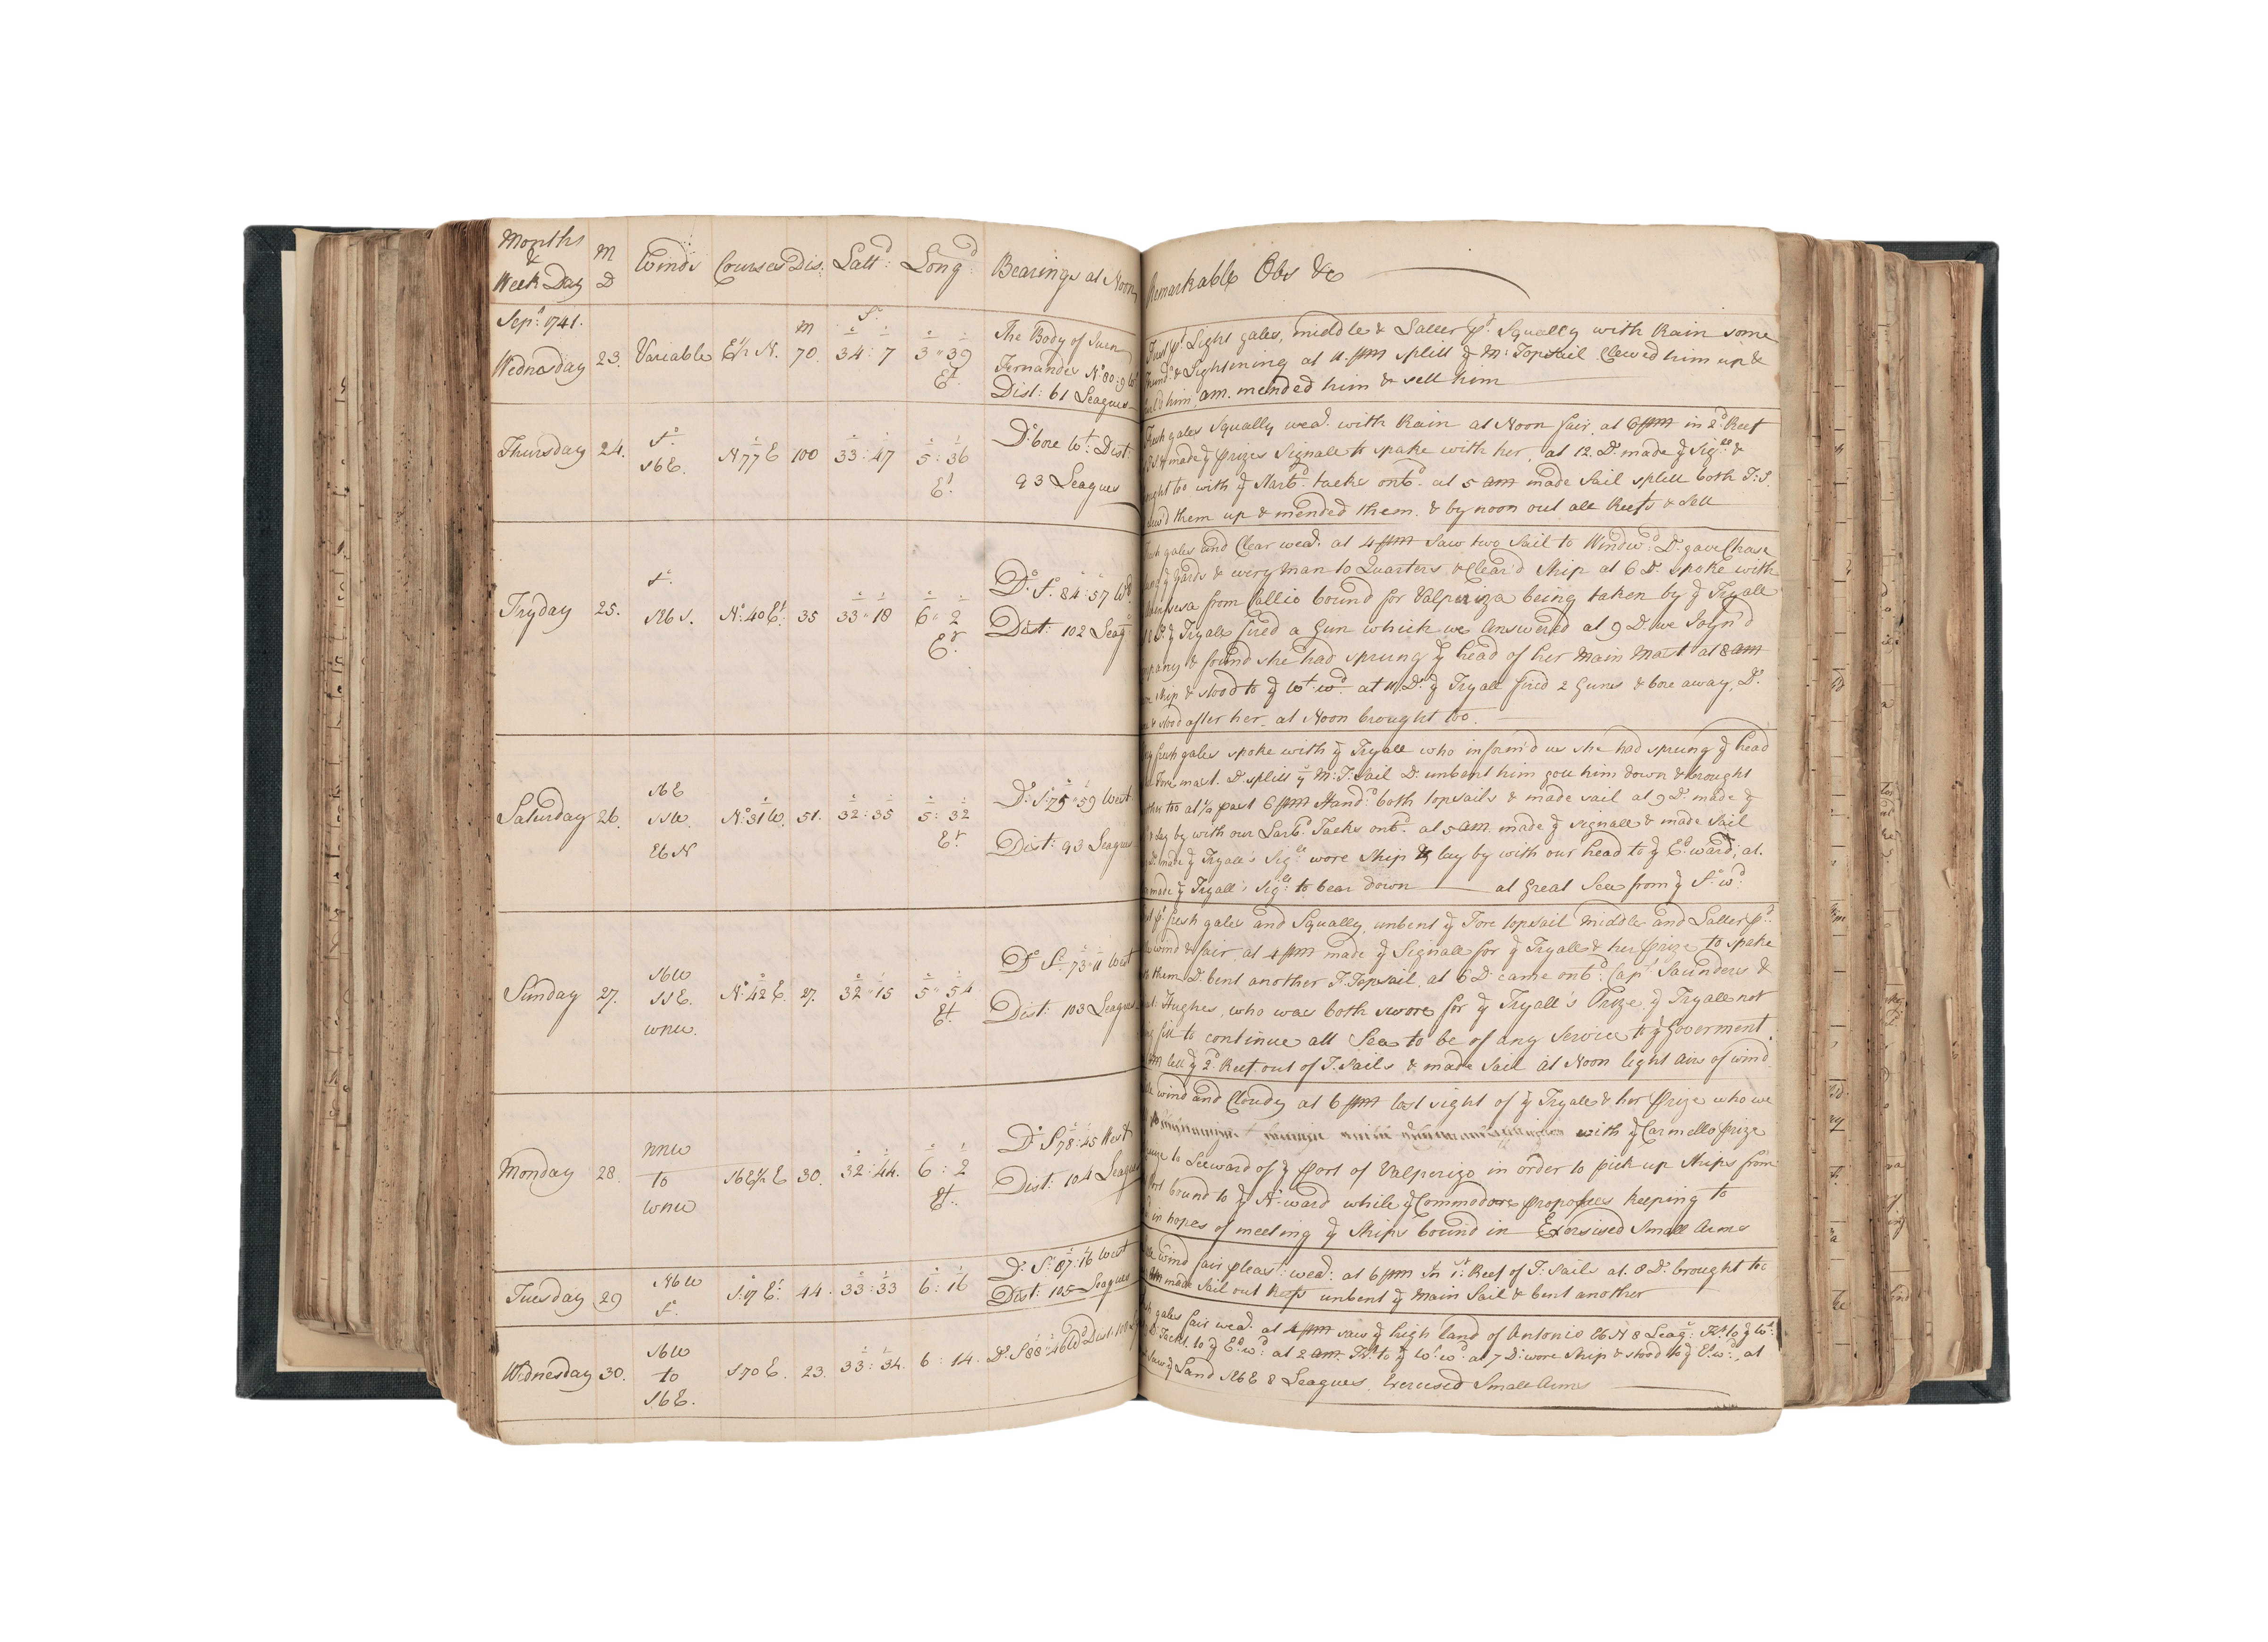 Months & Week Day M D Winds Courses Dis: Lattd: Longd: Bearings at Noon
Remarkable Obs &c
Sepr: 1741.
Wednesday 23. Variable E½N. m 70. So. 34:7 3"39 Et. The Body of Juan
Fernandes No 80:9 Wt
Dist: 61 Leagues
First pt Light gales, middle & Latter pt Squally with Rain some
& Lightning at 11. pm splitt ye M: Topsail Clewed him up &
him, am. mended him & sett him
Thursday 24. So. SbE. N77E 100 33:47 5:36 Et. Do: bore Wt: Dist:
93 Leagues
gales Squally wear. with Rain at Noon fair, at 6 pm in 2d: Reef
made ye prizes Signall to spake with her, at 12. Do: made ye Sigll &
too with ye Starbd. tacks onbd. at 5 am made Sail splitt both T:S.
them up & mended them. & by noon out all Reefs & Sett
Fryday 25. So. SbS. No:40Et: 35 33"18 6"2 Et. Do: So: 84:57 Wd
Dist: 102 Leags
gales and Clear wear. at 4 pm Saw two Sail to Windwd: Do: gave Chase
ye yards & every man to Quarters & Clear'd Ship at 6 Do: spoke with
from Callio bound for Valperiza being taken by ye Tryall
ye Tryall fired a Gun which we Answered at 9 Do: we Joyn'd
& found she had sprung ye head of her Main Mast at 8 am
ship & stood to ye Wt:wd: at 11 Do: ye Tryall fired 2 Guns & bore away, Do:
& stood after her. at Noon brought too.
Saturday 26. SbE SSW. EbN No:31W. 51. 32:35 5:32 Et. Do: So:75"59 West
Dist: 93 Leagues
fresh gales spoke with ye Tryall who inform'd us she had sprung ye head
Fore mast. Do: splitt ye M:T:Sail Do: unbent him gott him down & brought
too at ½ past 6 pm Hand:d both topsails & made sail at 9 Do: made ye
lay by with our Larbd: Tacks onbd: at 5 am. made ye signall & made Sail
made ye Tryall's Sigll: wore Ship & lay by with our head to ye Et:ward; at.
made ye Tryall's Sigll: to bear down at Great Sea from ye So:wd:
Sunday 27. SbW SSE. WNW. No:42E. 27. 32"15 5"54 Et. Do: So: 73"11 West
Dist: 103 Leagues
pt: fresh gales and Squally, unbent ye Fore topsail Middle and Latter pt:
wind & fair, at 4 pm made ye Signall for ye Tryall & her prize to spake
them Do: bent another F:Topsail, at 6 Do: came onbd: Capt: Saunders &
Hughes, who was both swore for ye Tryall's Prize ye Tryall not
fitt to continue att Sea to be of any Service to ye Goverment.
lett ye 2d: Reef out of T:Sails & made Sail at Noon light Airs of wind.
Monday 28. NNW to WNW SbE½E 30. 32:44. 6:2 Et. Do: S78:45 West
Dist: 104 Leagues
wind and Cloudy at 6 pm lost sight of ye Tryall & her Prize who we
with ye Carmello prize
to Leeward of ye Port of Valperizo in order to pick up Ships from
bound to ye No:ward while ye Commodore proposes keeping to
in hopes of meeting ye Ships bound in Exersised Small Arms
Tuesday 29 NbW So. S:17Et: 44. 33:33 6:16 Do: So:87:16 West
Dist: 105 Leagues
wind fair pleast: wear: at 6 pm In 1st: Reef of T:Sails at. 8 Do: brought to
made Sail out Reefs unbent ye Main Sail & bent another
Wednesday 30. SbW to SbE. S70E. 23. 33:34. 6:14. Do: S88:46Wd Dist:
gales fair wear. at 4 pm saw ye high land of Antonio EbN 8 Leags: Tkt: to ye Wt:
Tackt. to ye Et:wd: at 2 am. Tkt: to ye Wt:wd: at 7 Do: wore Ship & stood to ye Et:wd:, at
saw ye Land 8 Leagues. Exercised Small Arms